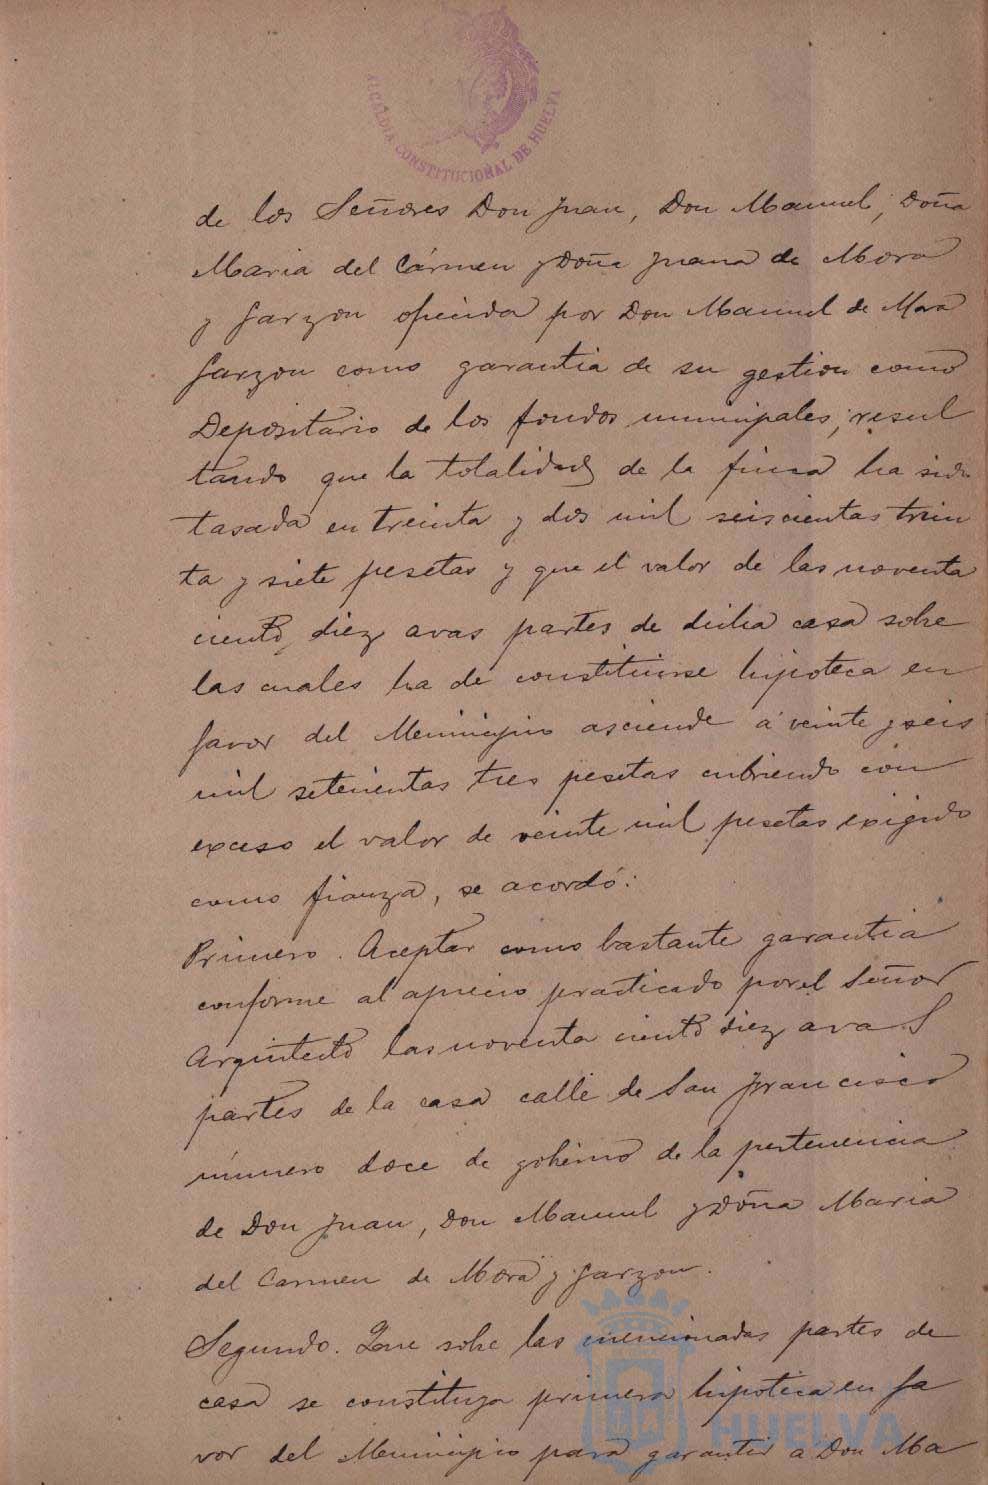 ALCALDIA CONSTITUCIONAL DE HUELVA
de los Señores Don Juan, Don Manuel, Doña
Maria del Cármen y Doña Juana de Mora
y Garzon ofrecida por Don Manuel de Mora
Garzon como garantia de su gestion como
Depositario de los fondos municipales; resul
tando que la totalidad de la finca ha sido
tasada en treinta y dos mil seiscientas trein
ta y siete pesetas y que el valor de las noventa
ciento diez avas partes de dicha casa sobre
las cuales ha de constituirse hipoteca en
favor del Municipio asciende á veinte y seis
mil setecientas tres pesetas cubriendo con
exceso el valor de veinte mil pesetas exigido
como fianza, se acordó:
Primero. Aceptar como bastante garantia
conforme al aprecio practicado por el Señor
Arquitecto las noventa ciento diez avas
partes de la casa calle de San Francisco
número doce de gobierno de la pertenencia
de Don Juan, Don Manuel y Doña Maria
del Carmen de Mora y Garzon.
Segundo. Que sobre las mencionadas partes de
casa se constituya primera hipoteca en fa
vor del Municipio para garantir a Don Ma
HUELVA